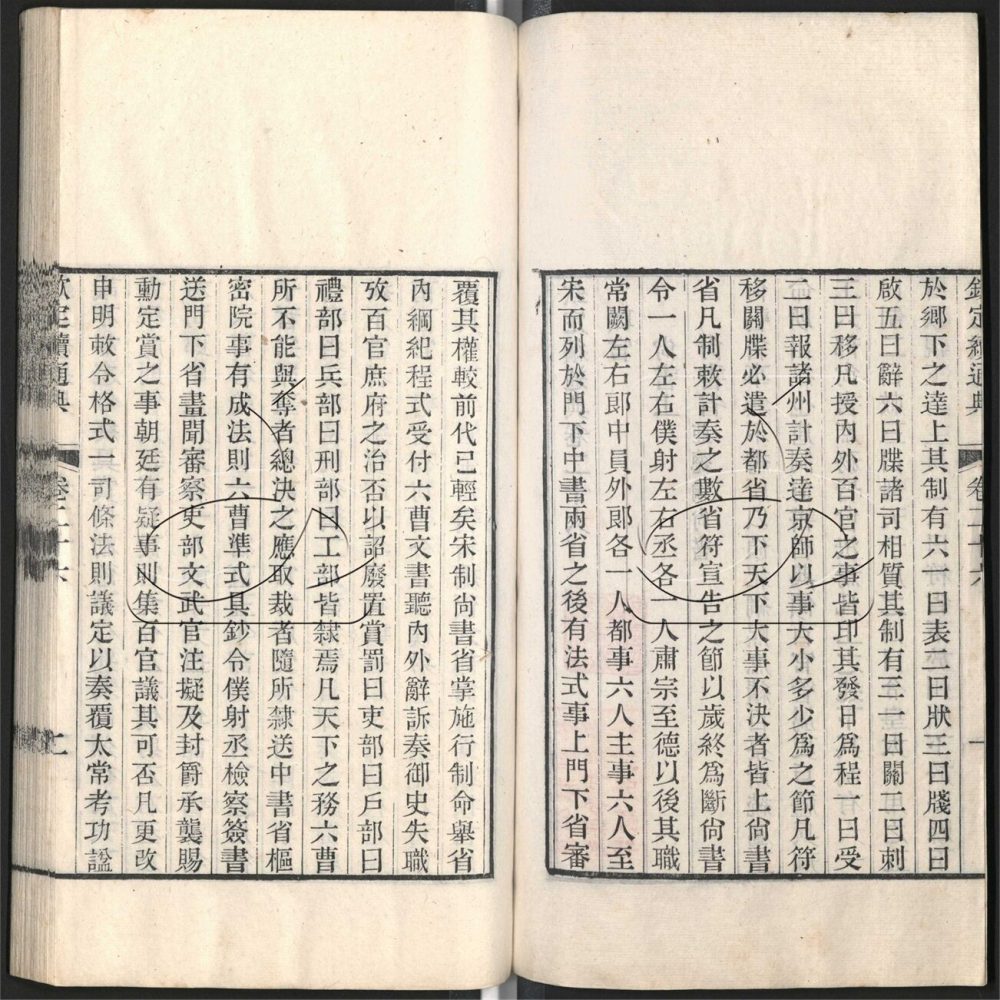 欽定續通典 卷二十六 一
於鄉下之達上其制有六一曰表二曰狀三曰牋四曰
啟五曰辭六曰牒諸司相質其制有三一曰關二曰刺
三曰移凡授內外百官之事皆印其發日為程一曰受
二曰報諸州計奏達京師以事大小多少為之節凡符
移關牒必遣於都省乃下天下大事不決者皆上尚書
省凡制敕計奏之數省符宣告之節以歲終為斷尚書
令一人左右僕射左右丞各一人肅宗至德以後其職
常闕左右郎中員外郎各一人都事六人主事六人至
宋而列於門下中書兩省之後有法式事上門下省審
覆其權較前代已輕矣宋制尚書省掌施行制命舉省
內綱紀程式受付六曹文書聽內外辭訴奏御史失職
攷百官庶府之治否以詔廢置賞罰曰吏部曰戶部曰
禮部曰兵部曰刑部曰工部皆隸焉凡天下之務六曹
所不能與奪者總決之應取裁者隨所隸送中書省樞
密院事有成法則六曹準式具鈔令僕射丞檢察簽書
送門下省畫聞審察吏部文武官注擬及封爵承襲賜
勳定賞之事朝廷有疑事則集百官議其可否凡更改
申明敕令格式一司條法則議定以奏覆太常考功謚
欽定續通典 卷二十六